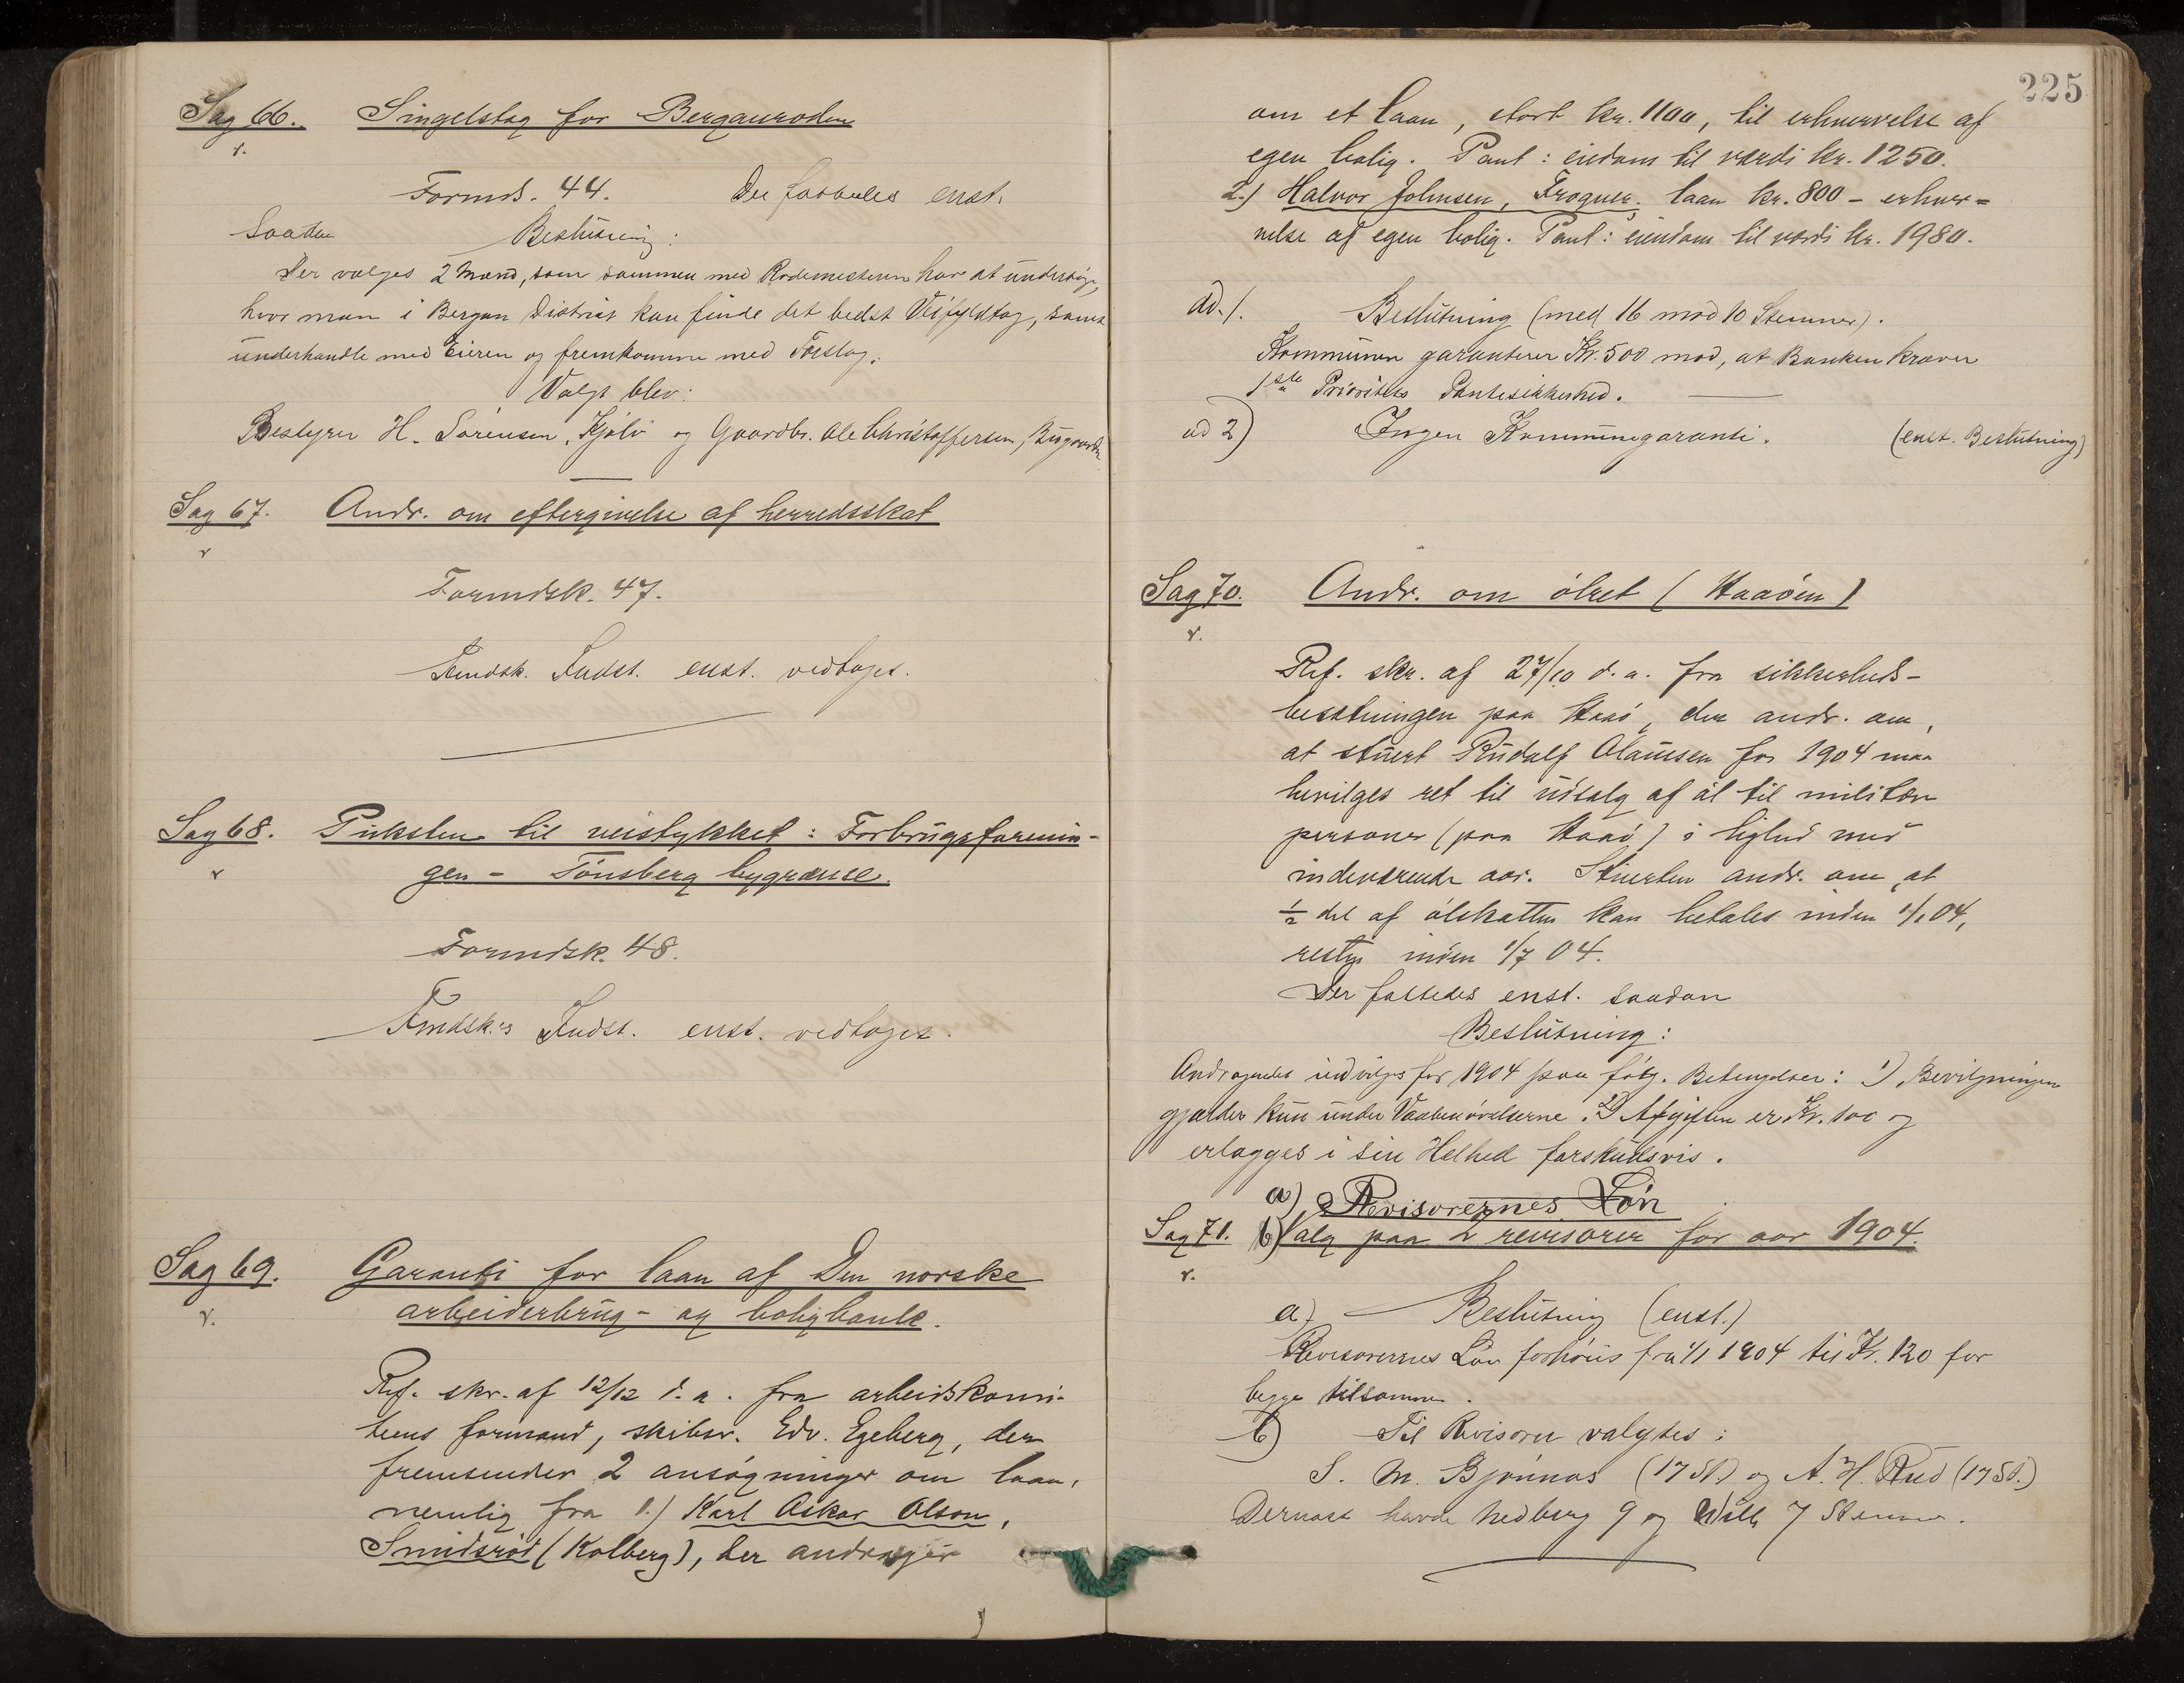 Sag 66. Singelstag for Bergan­roden
v.
Formds. 44. Der fattedes enst.
Saadan Beslutning:
Der vælges 2 Mænd, som sammen med Rodemesteren har at undersøge,
hvor man i Bergan District kan finde det bedst Veifyldtag, samt
underhandle med Eieren og fremkomme med Forslag.
Valgt blev:
Bestyrer H. Sørensen, Kjølø og Gaardbr. Ole Christoffersen,
Sag 67. Andr. om eftergivelse af herredsskat
v
Formdsk. 47.
Fmdsk. Indst. enst. vedtages.
Sag 68. Puksten til veistykket: Forbrugsforenin-
v
gen - Tønsberg bygrænse.
Formdsk. 48.
Fmdsk.'s Indst. enst. vedtages.
Sag 69. Garanti for laan af Den norske
v.
arbeiderbrug- og boligbank.
Ref. skr. af 12/12 d. a. fra arbeidskomi-
teens formand, skibsr. Edv. Egeberg, der
fremsender 2 ansøgninger om laan,
nemlig fra 1.) Karl Oskar Olson,
Smidsrød (Kolberg), der andrager
225
om et laan, stort kr. 1100, til erhvervelse af
egen bolig. Pant: eiendom til værdi kr. 1250.
2.) Halvor Johnsen, Frogner. laan kr. 800 - erhver=
velse af egen bolig. Pant: eiendom til værdi kr. 1980.
ad. 1. Beslutning (med 16 mod 10 Stemmer).
Kommunen garanterer Kr. 500 mod, at Banken kræver
1ste Prioritets Pantesikkerhed.
ad 2) Ingen Kommunegaranti. (enst. Beslutning)
Sag 70. Andr. om ølret (Haaøen)
v.
Ref. skr. af 27/10 d. a. fra sikkerheds-
besætningen paa Haaø, der andr. om,
at stuert Rudolf Olaussen for 1904 maa
bevilges ret til udsalg af øl til militære
personer (paa Haaø) i lighed med
indeværende aar. Stuerten andr. om at
½ del af ølskatten kan betales inden 1/1 04,
resten inden 1/7 04.
Der fattedes enst. saadan
Beslutning:
Andragendet indvilges for 1904 paa følg. Betingelser: 1) Bevilgningen
gjælder kun under Vaabenøvelserne. 2) Afgiften er Kr. 100 og
erlægges i sin Helhed forskudsvis.
a) Revisorernes Løn
Sag 71. b) Valg paa 2 revisorer for aar 1904.
v.
a) Beslutning (enst.)
Revisorernes Løn forhøies fra 1/1 1904 til Kr. 120 for
begge tilsammen.
b) Til Revisorer valgtes:
S. M. Bjønnes (17 St.) og A. H. Rud (17 St.)
Dernæst havde Hedberg 9 og 7 Stemmer.